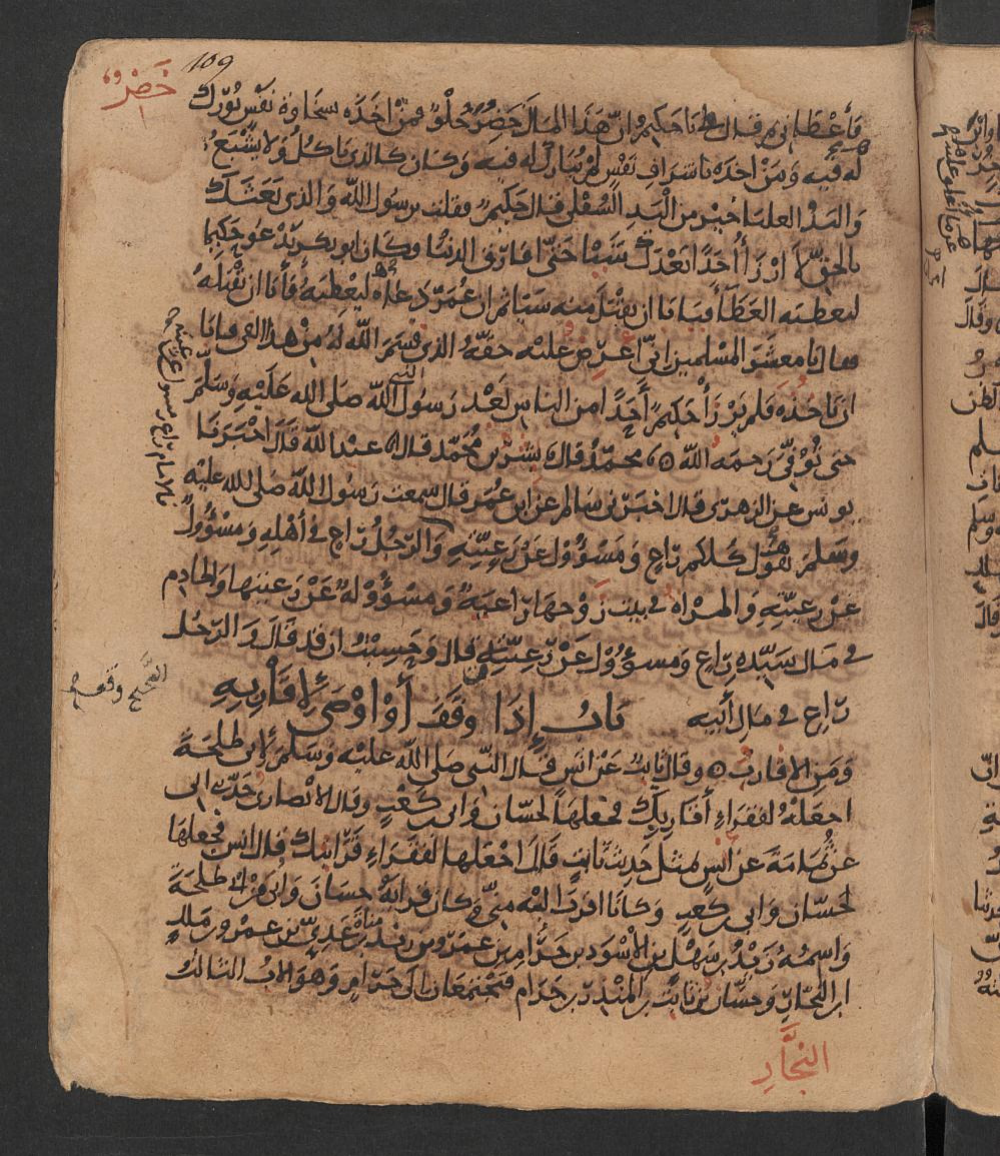 109
خَضِرٌ
فأعطاني ثم قال لي يا حكيم ان هذا المال خَضِرٌ حُلْوٌ فمن اخذه بسخاوة نفس بورك
له فيه ومن اخذه باشراف نفس لم يبارك له فيه وكان كالذي ياكل ولا يشبع
واليد العليا خير من اليد السفلى قال حكيم فقلت يرسول الله والذي بعثك
بالحق لا ارزأ احدا بعدك شيئا حتى افارق الدنيا وكان ابو بكر يدعو حكيما
ليعطيه العطا فيابا ان يقبل منه شيا ثم ان عمر دعاه ليعطيه فأبا ان يقبله
فقال يا معشر المسلمين اني اعرض عليه حقه الذي قسم الله له من هذا الفي فيابا
ان ياخذه فلم يرزأ حكيم أحدا من الناس بعد رسول الله صلى الله عليه وسلم
النبي
حتى توفي رحمه الله محمد قال بشر بن محمد قال عبد الله قال اخبرنا
يونس عن الزهري قال اخبرني سالم عن ابن عمر قال سمعت رسول الله صلى الله عليه
وسلم يقول كلكم راع ومسؤول عن رعيته والرجل راع في أهله ومسؤول
عن رعيته والمراه في بيت زوجها راعية ومسؤولة عن رعيتها والخادم
في مال سيده راع ومسؤول عن رعيته قال وحسبت ان قد قال والرجل
راع في مال أبيه باب إذا وقف أو اوصى لاقاربه
ومن الاقارب وقال ثابت عن انس قال النبي صلى الله عليه وسلم لابي طلحة
اجعله لفقراء أقاربك فجعلها لحسان وابي بن كعب وقال الانصاري حدثني ابي
عن ثمامة عن انس مثل حديث ثابت قال اجعلها لفقراء قرابتك قال انس فجعلها
لحسان وابي بن كعب وكانا اقرب اليه مني وكان قرابة حسان وابي من ابي طلحة
واسمه زيد بن سهل بن الاسود بن حرام بن عمرو بن زيد مناة بن عدي بن عمرو بن ملك
ابن النجار وحسان بن ثابت بن المنذر بن حرام فيجتمعان الى حرام وهو الاب الثالث
النجَّار